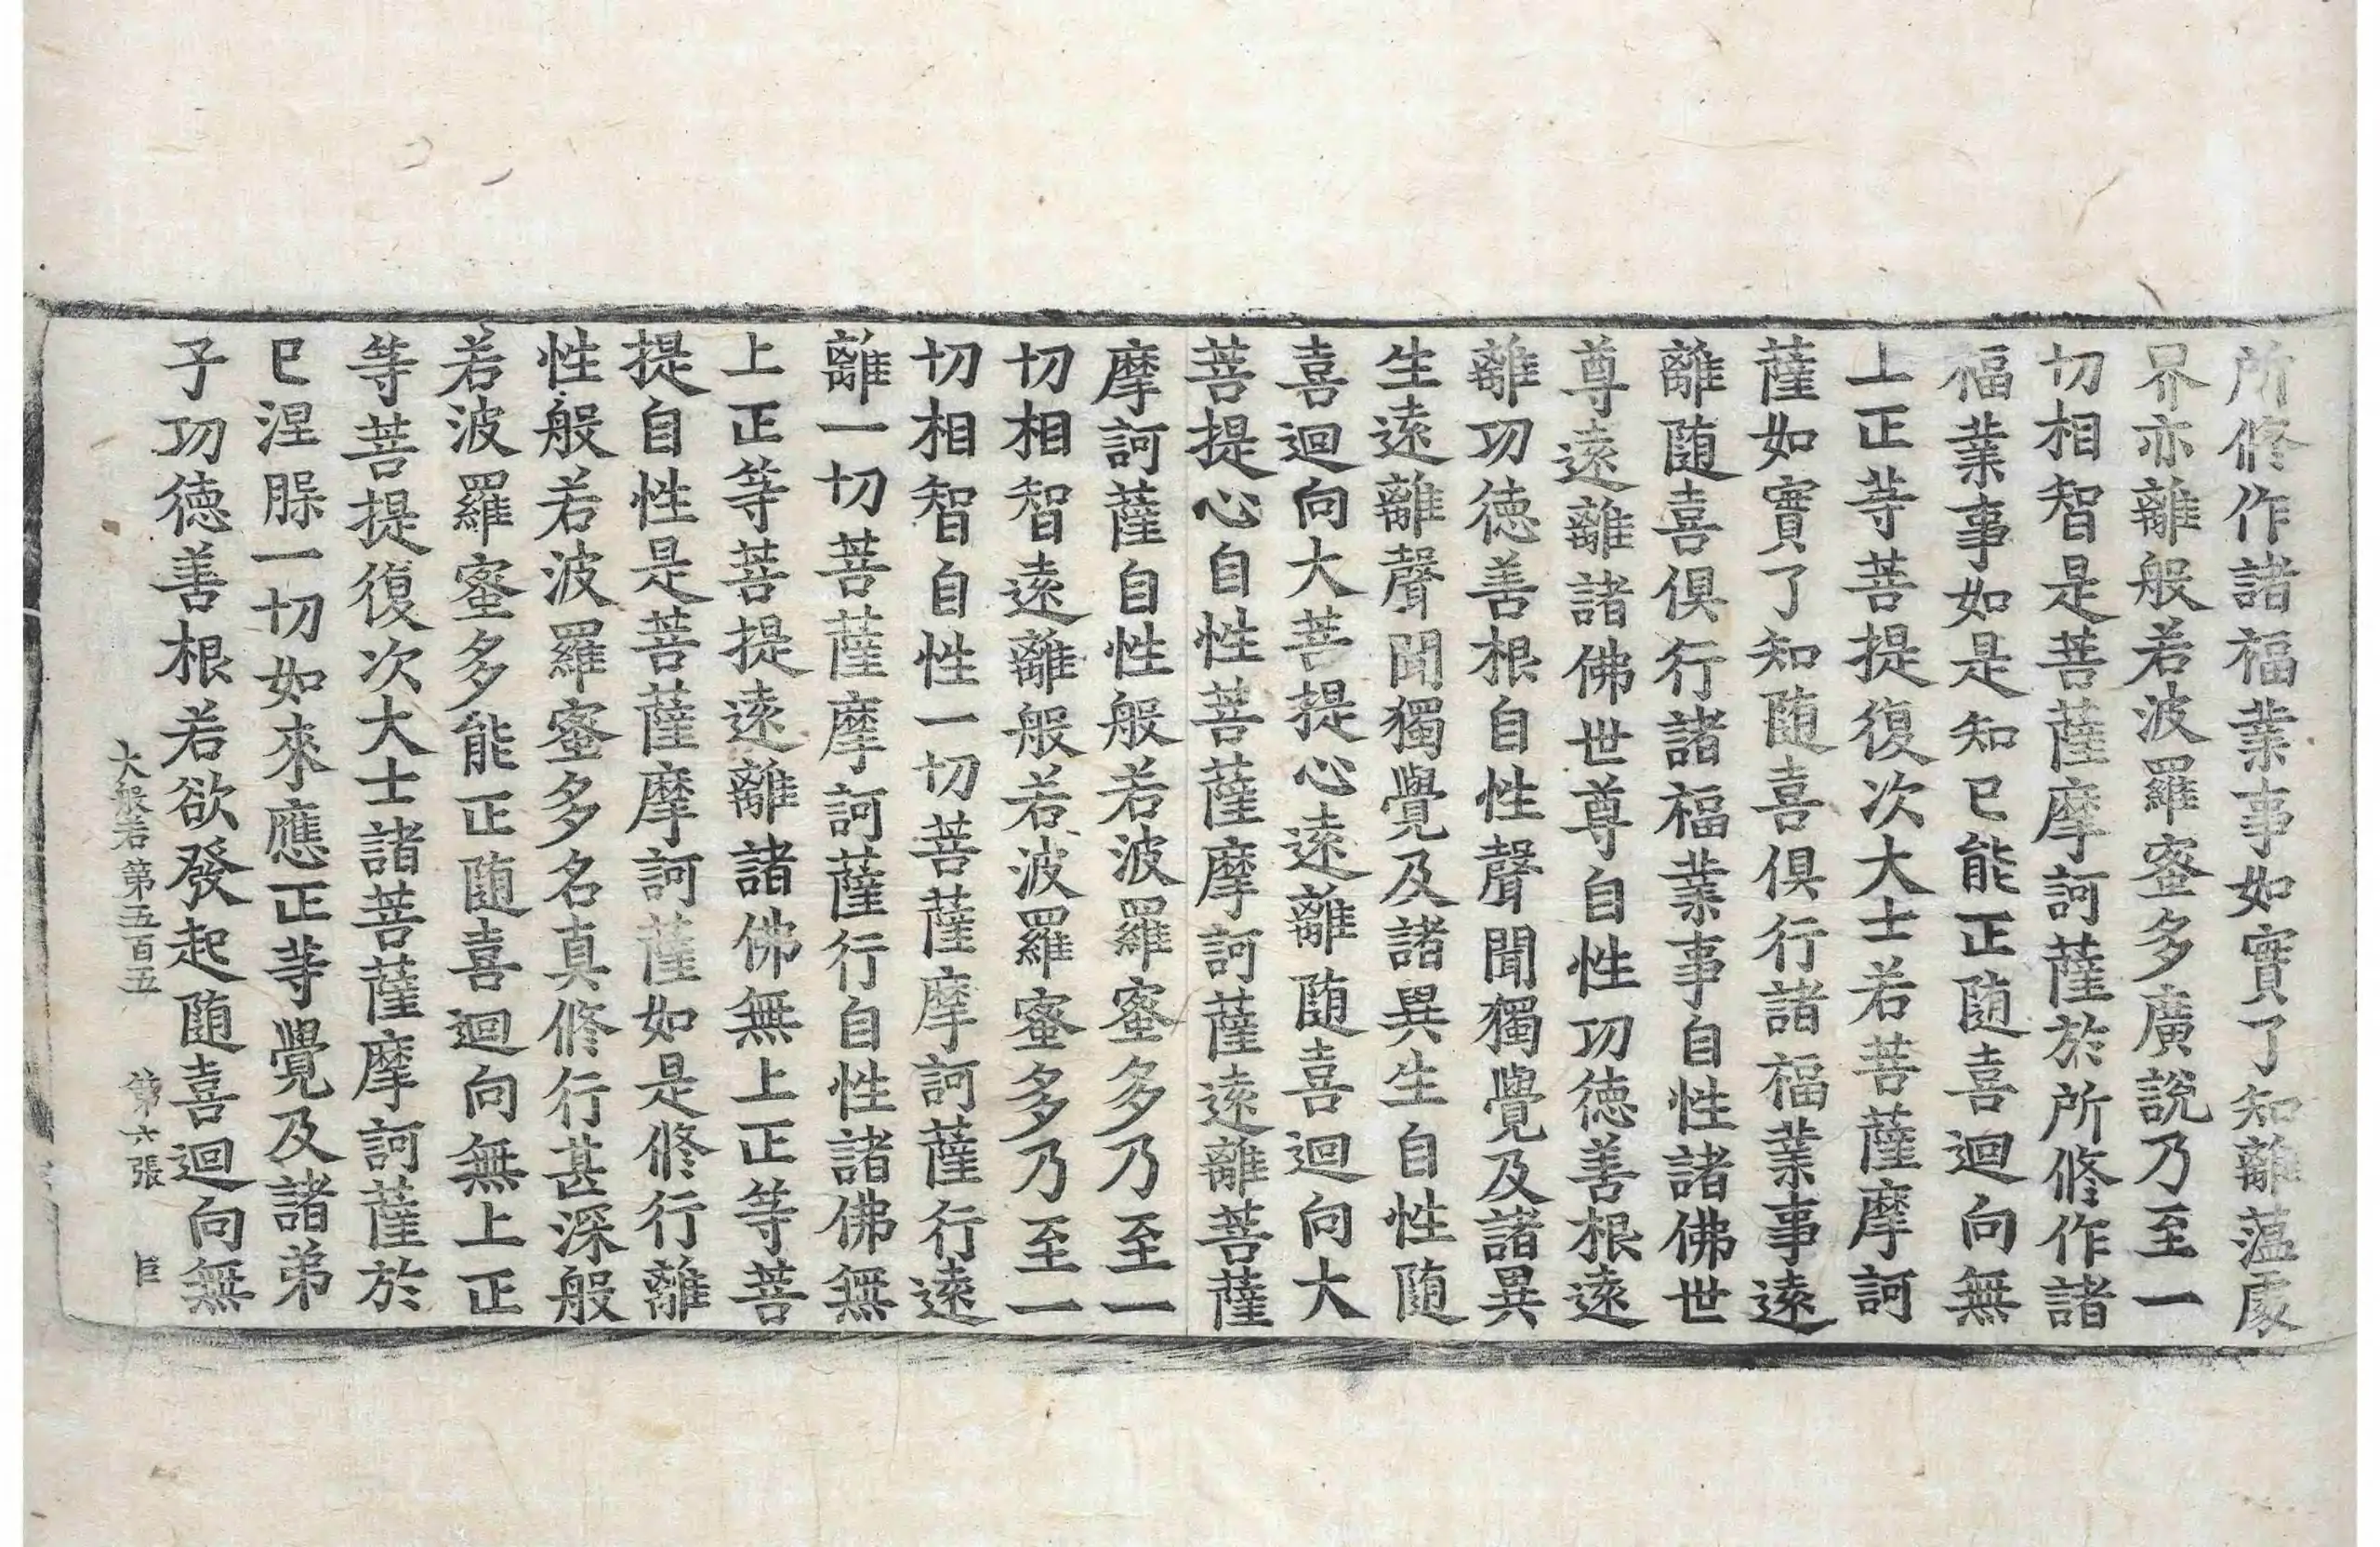 所修作諸福業事如實了知離蘊處
界亦離般若波羅蜜多廣說乃至一
切相智是菩薩摩訶薩於所修作諸
福業事如是知已能正随喜迴向無
上正等菩提復次大士若菩薩摩訶
薩如實了知随喜俱行諸福業事遠
離随喜俱行諸福業事自性諸佛世
尊遠離諸佛世尊自性功德善根遠
離功德善根自性聲聞獨覺及諸異
生遠離聲聞獨覺及諸異生自性随
喜迴向大菩提心遠離随喜迴向大
菩提心自性菩薩摩訶薩遠離菩薩
摩訶薩自性般若波羅蜜多乃至一
切相智遠離般若波羅蜜多乃至一
切相智自性一切菩薩摩訶薩行遠
離一切菩薩摩訶薩行自性諸佛無
上正等菩提遠離諸佛無上正等菩
提自性是菩薩摩訶薩如是修行離
性般若波羅蜜多名真修行甚深般
若波羅蜜多能正随喜迴向無上正
等菩提復次大士諸菩薩摩訶薩於
已涅槃一切如來應正等覺及諸弟
子功德善根若欲發起随喜迴向無
大般若第五百五 第六張 臣